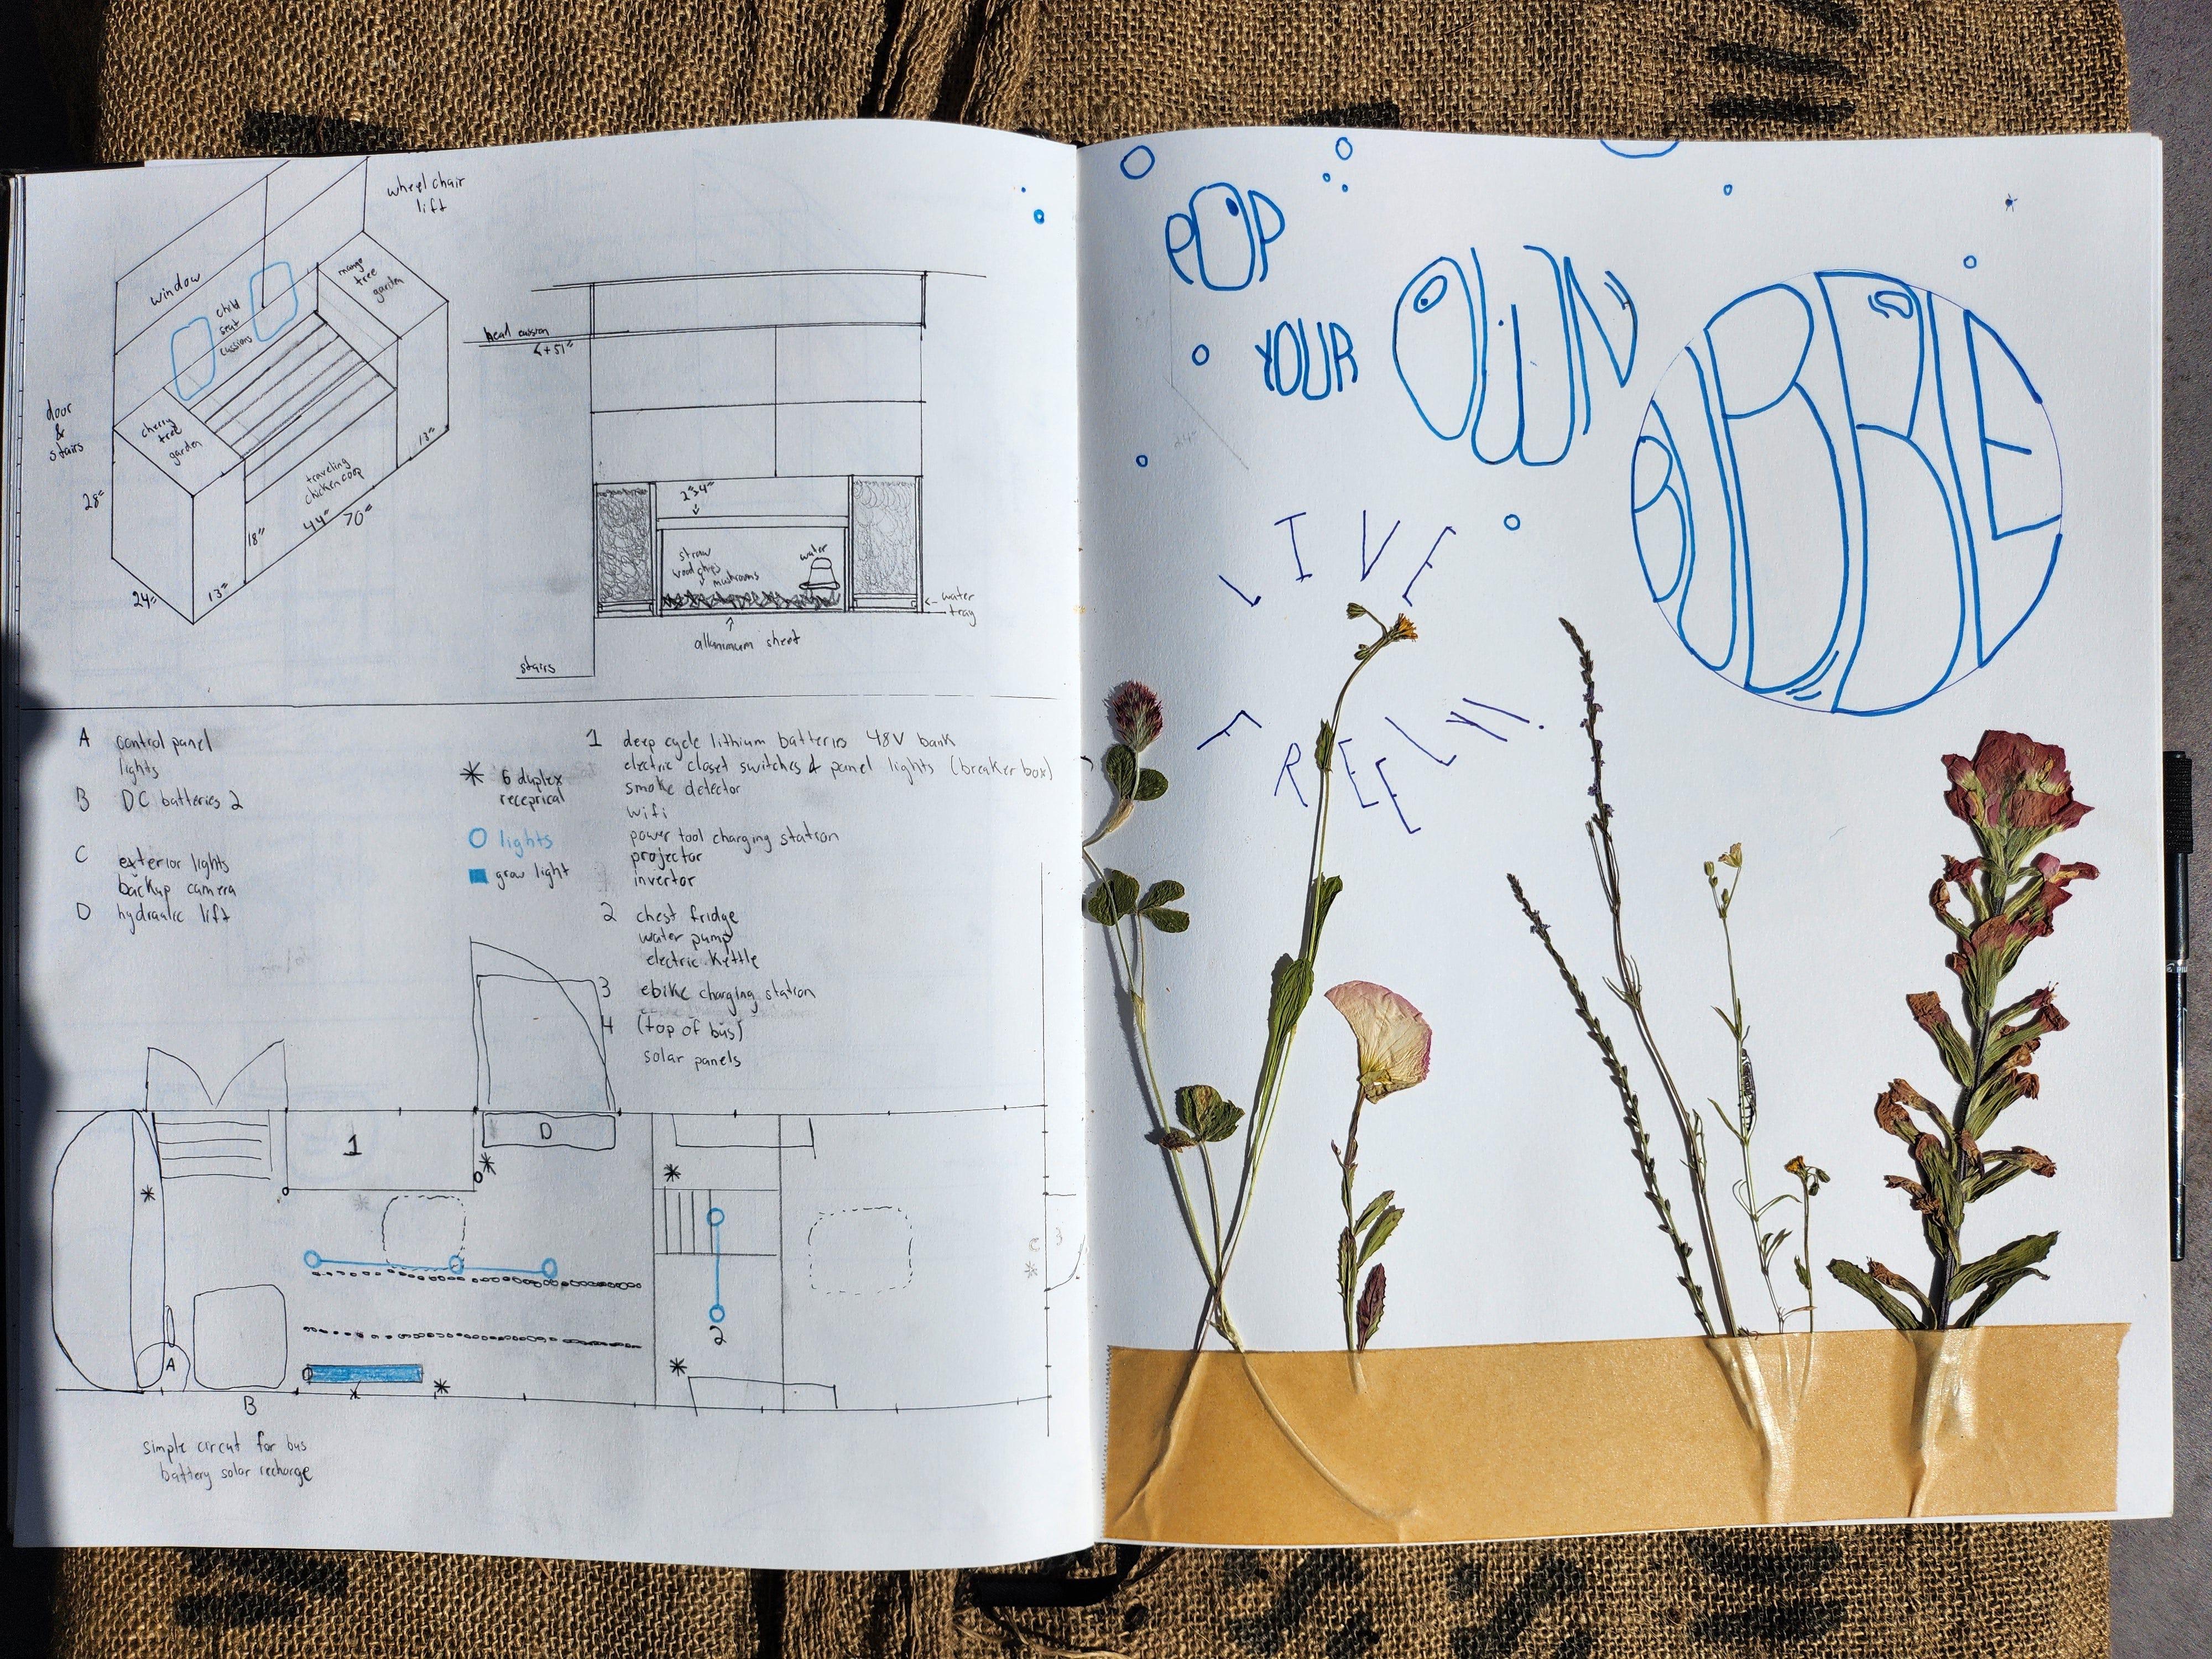 wheel chair
lift
window
child
seat
cussions
mango
tree
garden
door
&
stairs
cherry
tree
garden
traveling
chicken coop
28"
24"
13"
18"
44"
70"
13"
head cussion
2"
straw
wood chips
mushrooms
water
water
tray
allunimum sheet
stairs
A control panel
lights
B DC batteries 2
C exterior lights
backup camera
D hydraulic lift
* 6 duplex
receprical
lights
grow light
1 deep cycle lithium batteries 48V bank
electric closet switches & panel lights (breaker box)
smoke detector
wifi
power tool charging station
projector
invertor
2 chest fridge
water pump
electric kettle
3 ebike charging station
4 (top of bus)
solar panels
1
D
*
*
*
2
*
*
A
B
C 3
*
simple circut for bus
battery solar recharge
POP
YOUR
OWN
BUBBLE
LIVE
FREELY!
24"